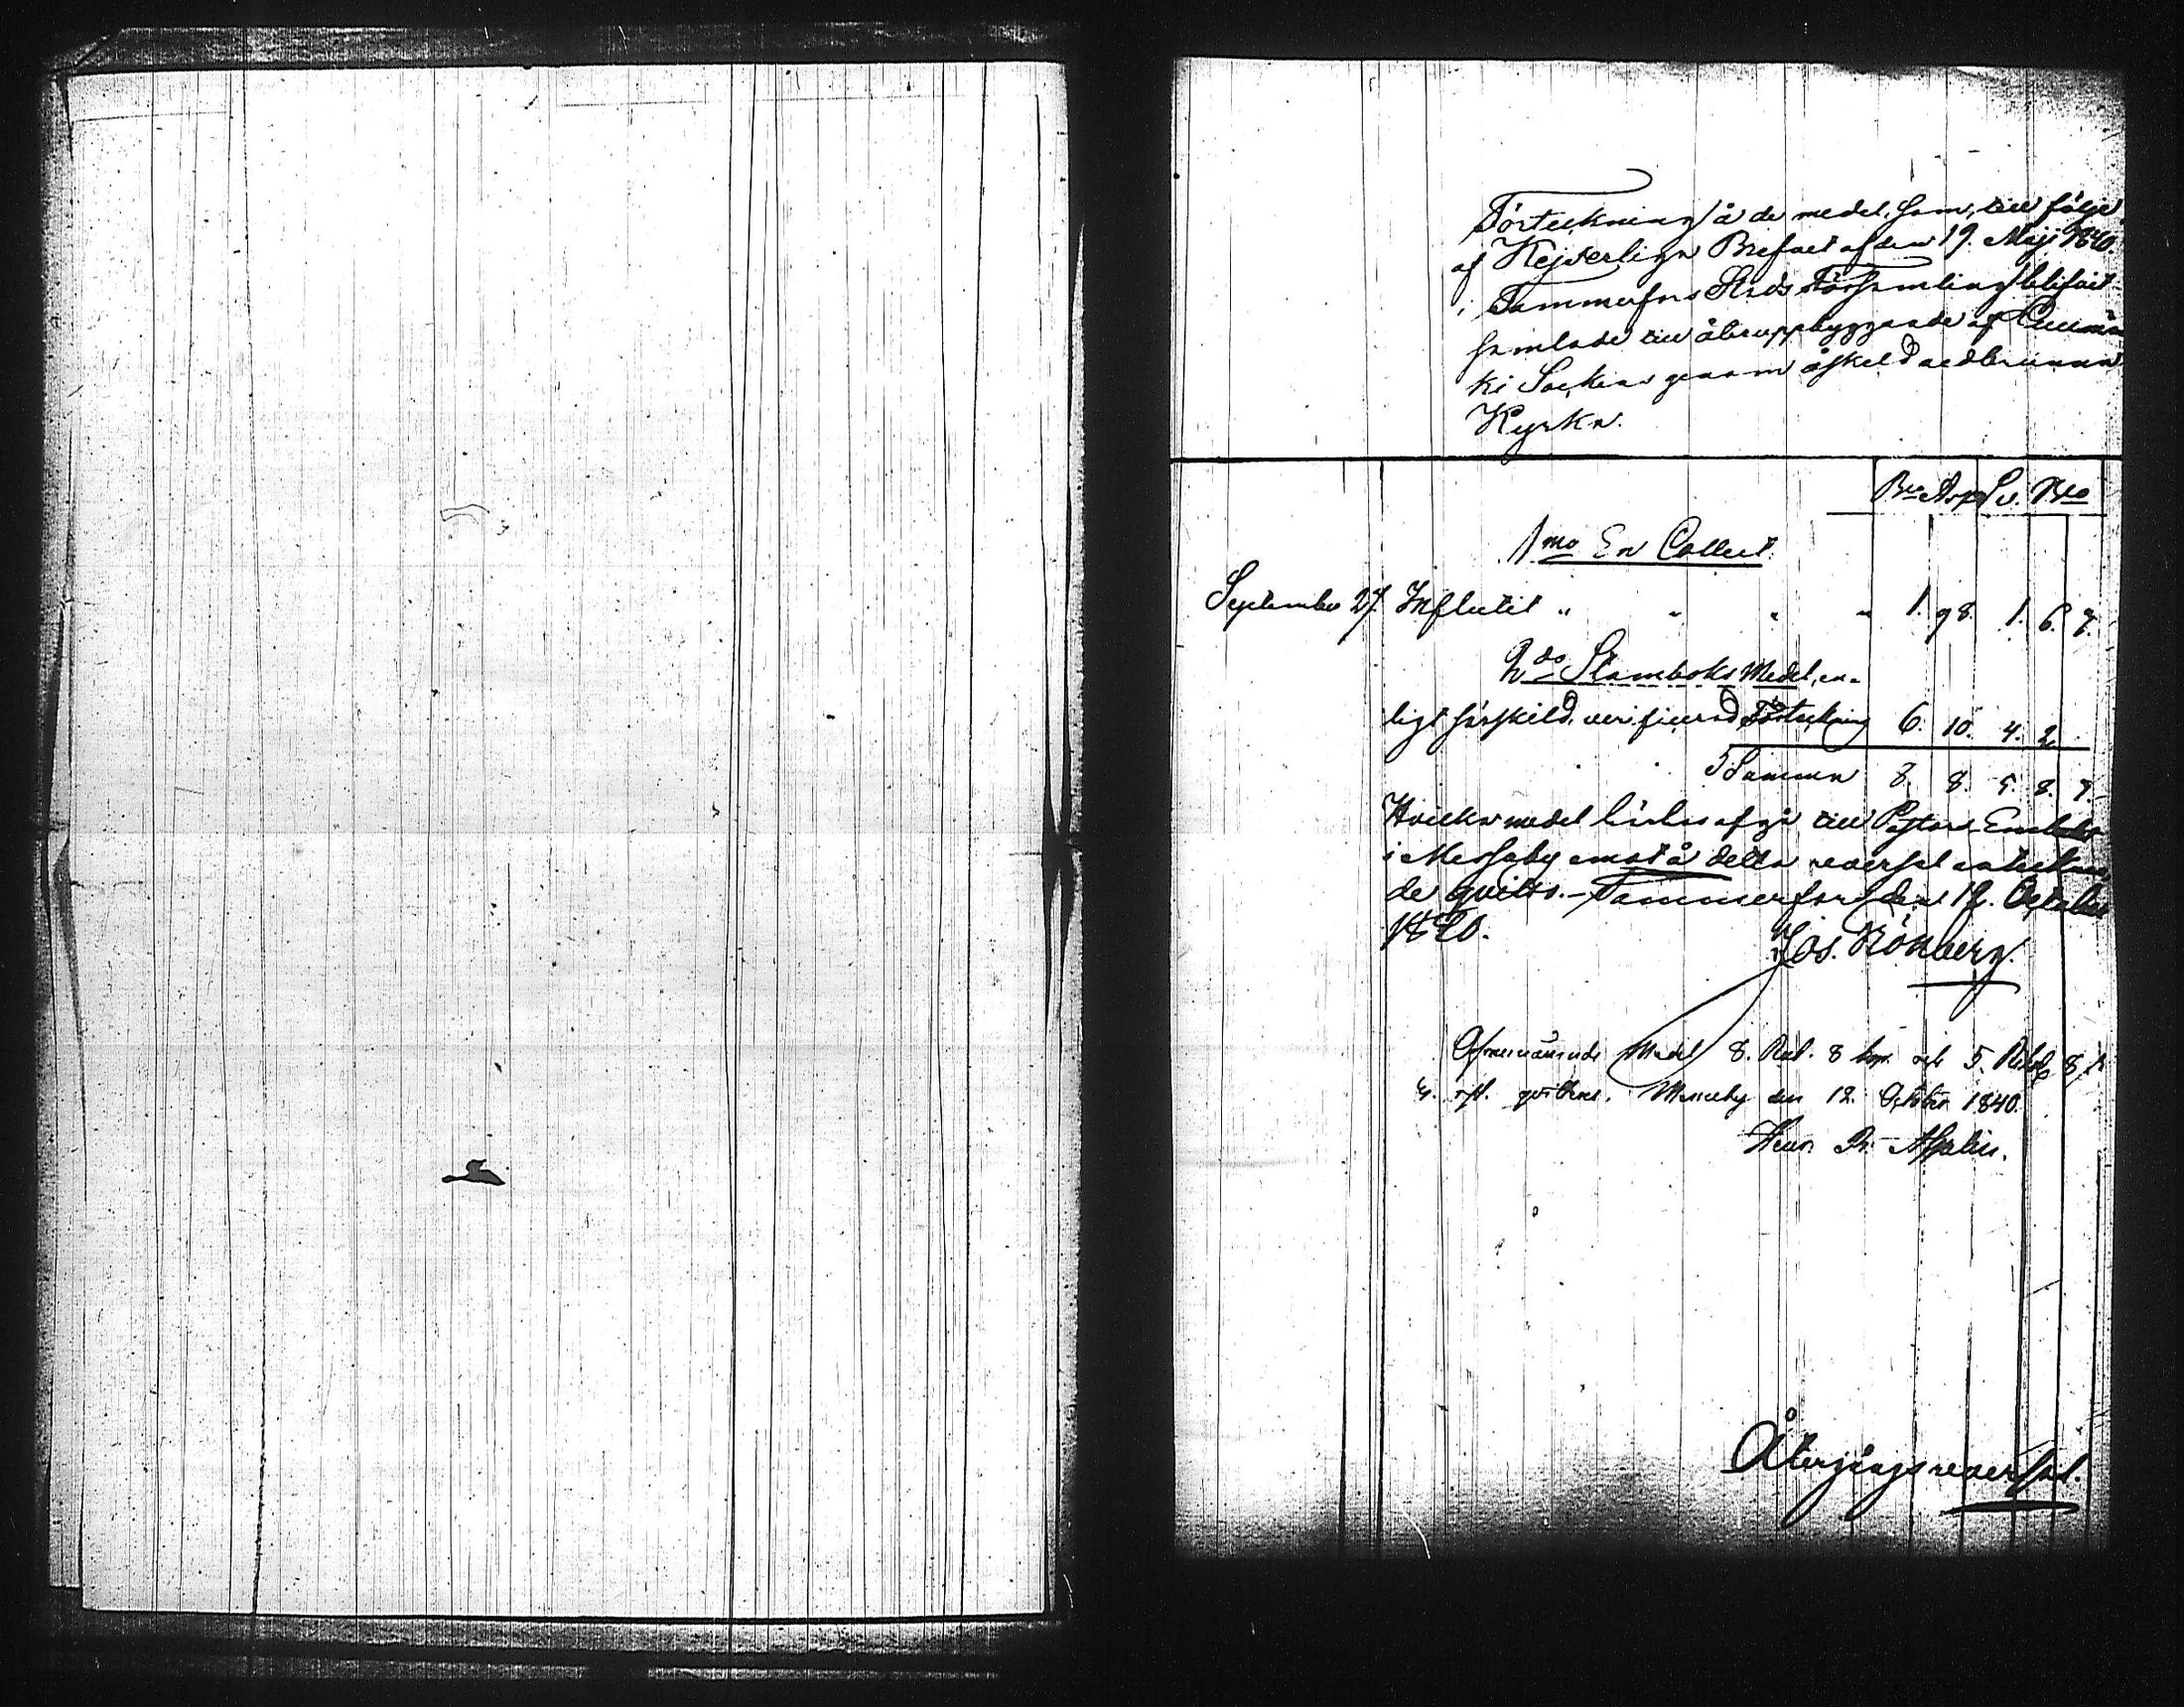 Förteckning å de medel, som, till följe
af Kejserliga Brefvet af den 19. Maji 1840.
i Tammerfors Stads Församling blifvit
samlade till återuppbyggande af Cuumä
ki Sockens genom åskeld nedbrunna
Kyrka.
Bco Ass. Sv. Bco
1mo En Collect.
September 27. Influtit " " " " 1. 98. 1. 6. 7.
2do Stamboks Medel, en-
ligt särskild, verificerad Förteckning 6. 10. 4. 2
Summa 8. 8. 5. 8. 7.
Hvilka medel härhos afgå till Pastors Embetet
i Messuby emot å detta reversal anteknan
de quitto. - Tammerfors den 12. October
1840.
Jos. Rönberg.
Ofvannämnde Medel 8. Rub. 8 kop. och 5. Rdr 8 s
4. rst. qvitteras. Messuby den 12. October 1840.
Asselin.
Återgångsreversal.